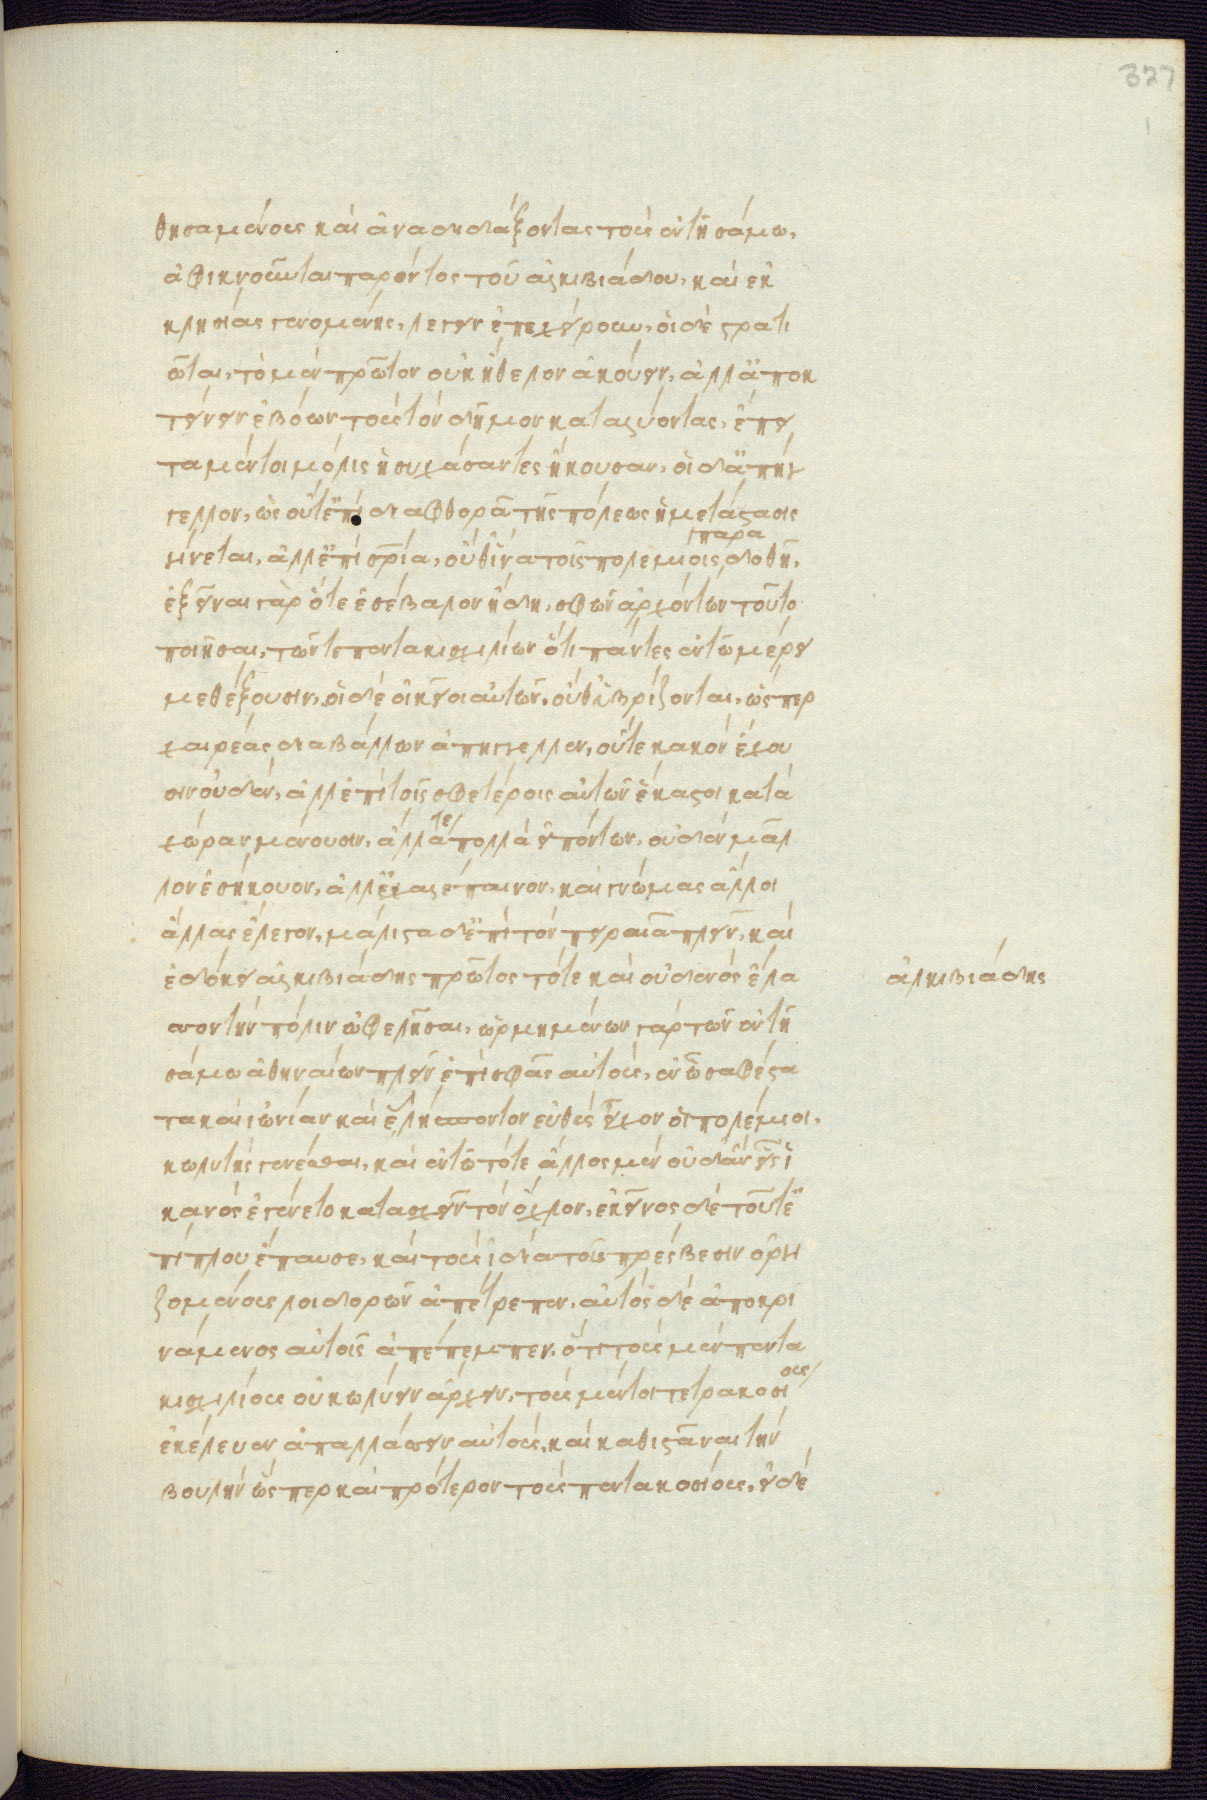 θησαμένους καὶ ἀναδιδάξοντας τοὺς ἐν τῆ σάμω,
ἀφικνοῦνται παρόντος τοῦ ἀλκιβιάδου, καὶ ἐκ
κλησίας γενομένης, λέγειν ἐπεχείρουν, οἱ δὲ στρατι
ῶται, τὸ μὲν πρῶτον οὐκ ἤθελον ἀκούειν, ἀλλ' ἀποκ
τείνειν ἐβόων τοὺς τὸν δῆμον καταλύοντας, ἔπει
τα μέντοι μόλις ἡσυχάσαντες ἤκουσαν, οἱ δ' ἀπήγ
γελλον, ὡς οὔτ' ἐπὶ διαφθορᾶ τῆς πόλεως ἡ μετάστασις
γίνεται, ἀλλ' ἐπὶ σρία, οὔθ' ἵνα τοῖς πολεμίοις παραδοθῆ,
ἐξεῖναι γὰρ ὅτε ἐσέβαλον ἤδη, σφῶν ἀρχόντων τοῦτο
ποιῆσαι, τῶν τε πεντακισχιλίων ὅτι πάντες ἐν τῶ μέρει
μεθέξουσιν, οἱ δὲ οἰκεῖοι αὐτῶν, οὔθ' ὑβρίζονται, ὥσπερ
χαιρέας διαβάλλων ἀπήγγελλεν, οὔτε κακὸν ἔχου
σιν οὐδέν, ἀλλ' ἐπὶ τοῖς σφετέροις αὐτῶν ἕκαστοι κατὰ
χώραν μένουσιν, ἄλλα τε πολλὰ εἰπόντων, οὐδὲν μᾶλ
λον ἐσήκουον, ἀλλ' ἐχαλέπαινον, καὶ γνώμας ἄλλοι
ἄλλας ἔλεγον, μάλιστα δ' ἐπὶ τὸν πειραιᾶ πλεῖν, καὶ
ἐδόκει ἀλκιβιάδης πρῶτος τότε καὶ οὐδενὸς ἔλα
σσον τὴν πόλιν ὠφελῆσαι, ὡρμημένων γὰρ τῶν ἐν τῆ
σάμω ἀθηναίων πλεῖν ἐπὶ σφᾶς αὐτούς, ἐν ὧ σαφέστα
τα καὶ ἰωνίαν καὶ ἑλλήσποντον εὐθὺς εἶχον οἱ πολέμιοι,
κωλυτὴς γενέσθαι, καὶ ἐν τῶ τότε ἄλλος μὲν οὐδ' ἂν εἷς ἱ
κανὸς ἐγένετο κατασχεῖν τὸν ὄχλον, ἐκεῖνος δὲ τοῦ τ' ἐ
πίπλου ἔπαυσε, καὶ τοὺς ἰδία τοῖς πρέσβεσιν ὀργι
ζομένους λοιδορῶν ἀπέτρεπεν, αὐτὸς δὲ ἀποκρι
νάμενος αὐτοῖς ἀπέπεμπεν, ὅτι τοὺς μὲν πεντα
κισχιλίους οὐ κωλύειν ἄρχειν, τοὺς μέντοι τετρακοσίους
ἐκέλευεν ἀπαλλάσσειν αὐτούς, καὶ καθιστάναι τὴν
βουλὴν ὥσπερ καὶ πρότερον τοὺς πεντακοσίους, εἰ δὲ
ἀλκιβιάδης
327